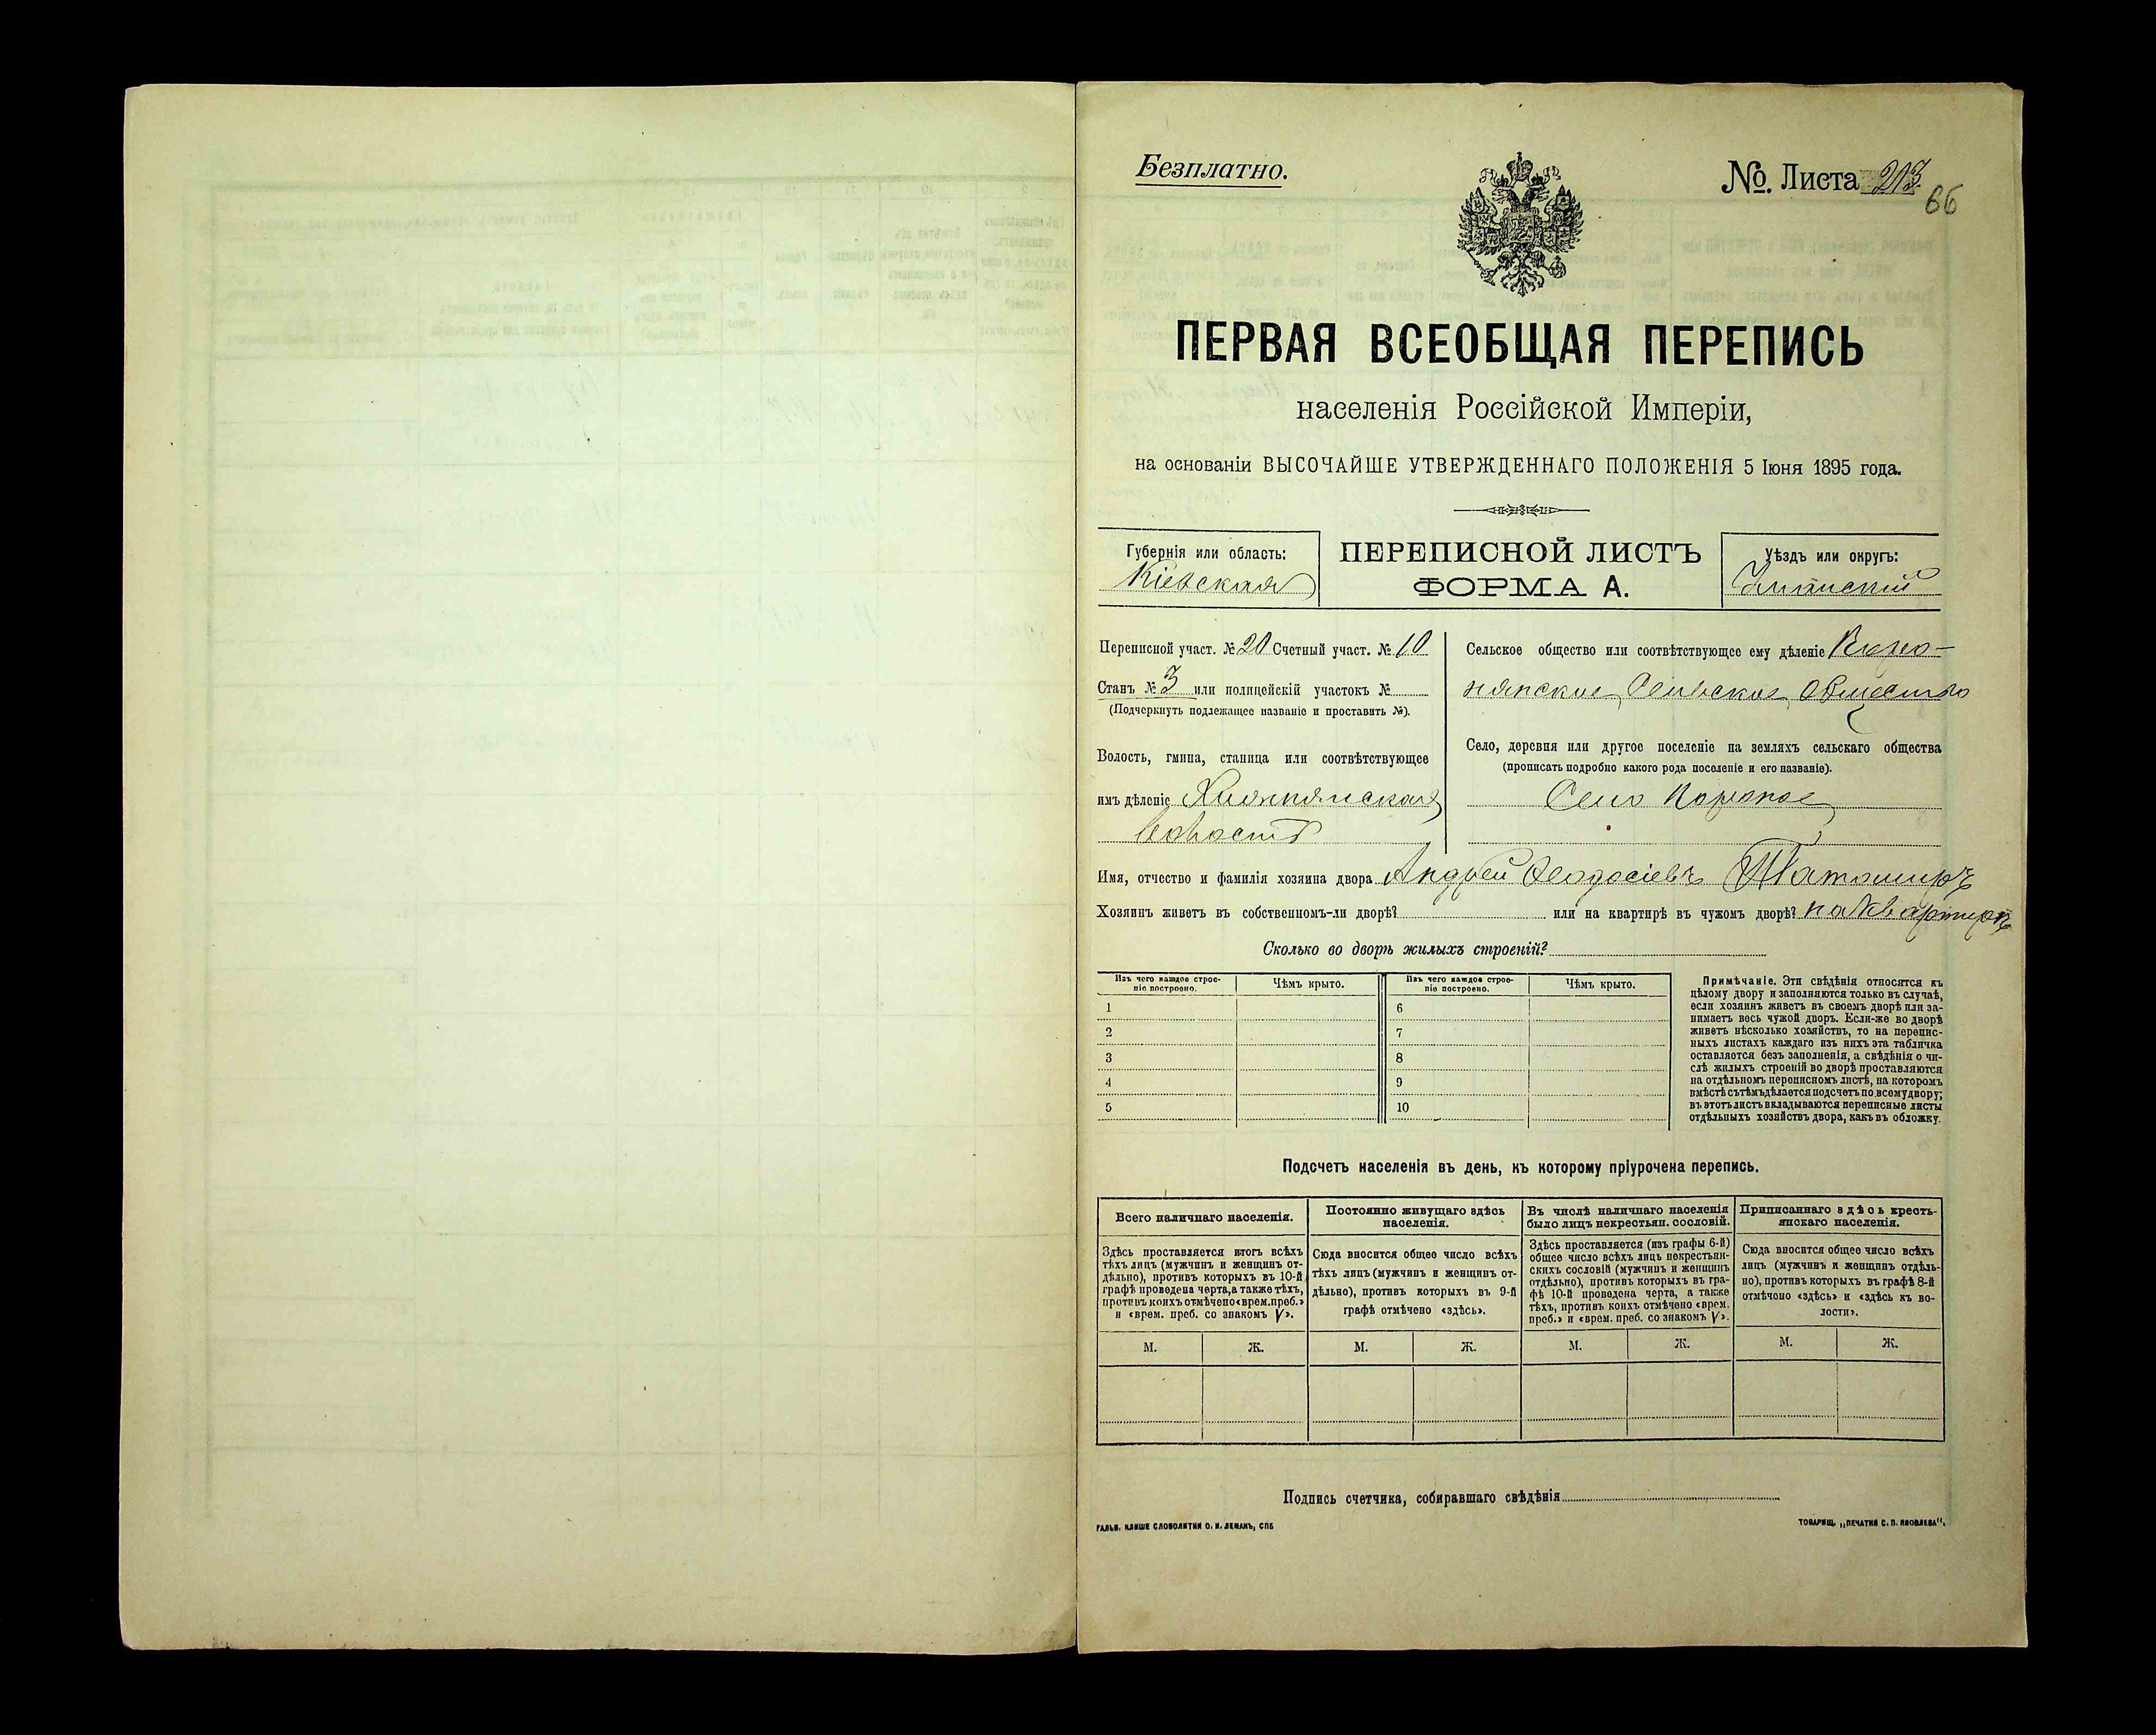 Безплатно.
№. Листа 213
66
ПЕРВАЯ ВСЕОБЩАЯ ПЕРЕПИСЬ
населенія Россійской Имперіи,
на основаніи ВЫСОЧАЙШЕ УТВЕРЖДЕННАГО ПОЛОЖЕНІЯ 5 Іюня 1895 года.
Губернія или область:
Кіевская
ПЕРЕПИСНОЙ ЛИСТЪ
ФОРМА А.
Уѣздъ или округъ:
Уманскій
Переписной участ. № 20 Счетный участ. № 10
Станъ № 3 или полицейскій участокъ №
(Подчеркнуть подлежащее названіе и проставить №).
Волость, гмина, станица или соотвѣтствующее
имъ дѣленіе
Волость
Сельское общество или соотвѣтствующее ему дѣленіе
Сельское Общество
Село, деревня или другое поселеніе на земляхъ сельскаго общества
(прописать подробно какого рода поселеніе и его названіе).
Село
Имя, отчество и фамилія хозяина двора Андрей Феодосіевъ Татомиръ
Хозяинъ живетъ въ собственномъ-ли дворѣ? или на квартирѣ въ чужомъ дворѣ? на квартирѣ
Сколько во дворѣ жилыхъ строеній?
Изъ чего каждое строе-
ніе построено.
Чѣмъ крыто.
Изъ чего каждое строе-
ніе построено.
Чѣмъ крыто.
1 6
2 7
3 8
4 9
5 10
Примѣчаніе. Эти свѣдѣнія относятся къ
цѣлому двору и заполняются только въ случаѣ,
если хозяинъ живетъ въ своемъ дворѣ или за-
нимаетъ весь чужой дворъ. Если-же во дворѣ
живетъ нѣсколько хозяйствъ, то на перепис-
ныхъ листахъ каждаго изъ нихъ эта табличка
оставляется безъ заполненія, а свѣдѣнія о чи-
слѣ жилыхъ строеній во дворѣ проставляются
на отдѣльномъ переписномъ листѣ, на которомъ
вмѣстѣ съ тѣмъ дѣлается подсчетъ по всему двору;
въ этотъ листъ вкладываются переписные листы
отдѣльныхъ хозяйствъ двора, какъ въ обложку.
Подсчетъ населенія въ день, къ которому пріурочена перепись.
Всего наличнаго населенія.
Постоянно живущаго здѣсь
населенія.
Въ числѣ наличнаго населенія
было лицъ некрестьян. сословій.
Приписаннаго здѣсь кресть-
янскаго населенія.
Здѣсь проставляется итогъ всѣхъ
тѣхъ лицъ (мужчинъ и женщинъ от-
дѣльно), противъ которыхъ въ 10-й
графѣ проведена черта, а также тѣхъ,
противъ коихъ отмѣчено «врем. преб.»
и «врем. преб. со знакомъ V».
Сюда вносится общее число всѣхъ
тѣхъ лицъ (мужчинъ и женщинъ от-
дѣльно), противъ которыхъ въ 9-й
графѣ отмѣчено «здѣсь».
Здѣсь проставляется (изъ графы 6-й)
общее число всѣхъ лицъ некрестьян-
скихъ сословій (мужчинъ и женщинъ
отдѣльно), противъ которыхъ въ гра-
фѣ 10-й проведена черта, а также
тѣхъ, противъ коихъ отмѣчено «врем.
преб.» и «врем. преб. со знакомъ V».
Сюда вносится общее число всѣхъ
лицъ (мужчинъ и женщинъ отдѣль-
но), противъ которыхъ въ графѣ 8-й
отмѣчено «здѣсь» и «здѣсь къ во-
лости».
М. Ж. М. Ж. М. Ж. М. Ж.
Подпись счетчика, собиравшаго свѣдѣнія
ГАЛЬВ. КЛИШЕ СЛОВОЛИТНИ О. И. ЛЕМАНЪ, СПБ
ТОВАРИЩ. „ПЕЧАТНЯ С. П. ЯКОВЛЕВА“.